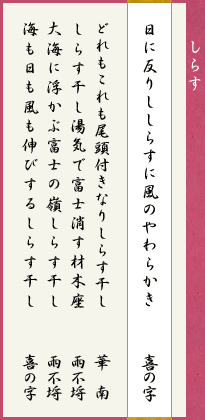 しらす
日に反りししらすに風のやわらかき　喜の字
どれもこれも尾頭付きなりしらす干し　華南
しらす干し湯気で富士消す材木座　雨不埒
大海に浮かぶ富士の嶺しらす干し　雨不埒
海も日も風も伸びするしらす干し　喜の字